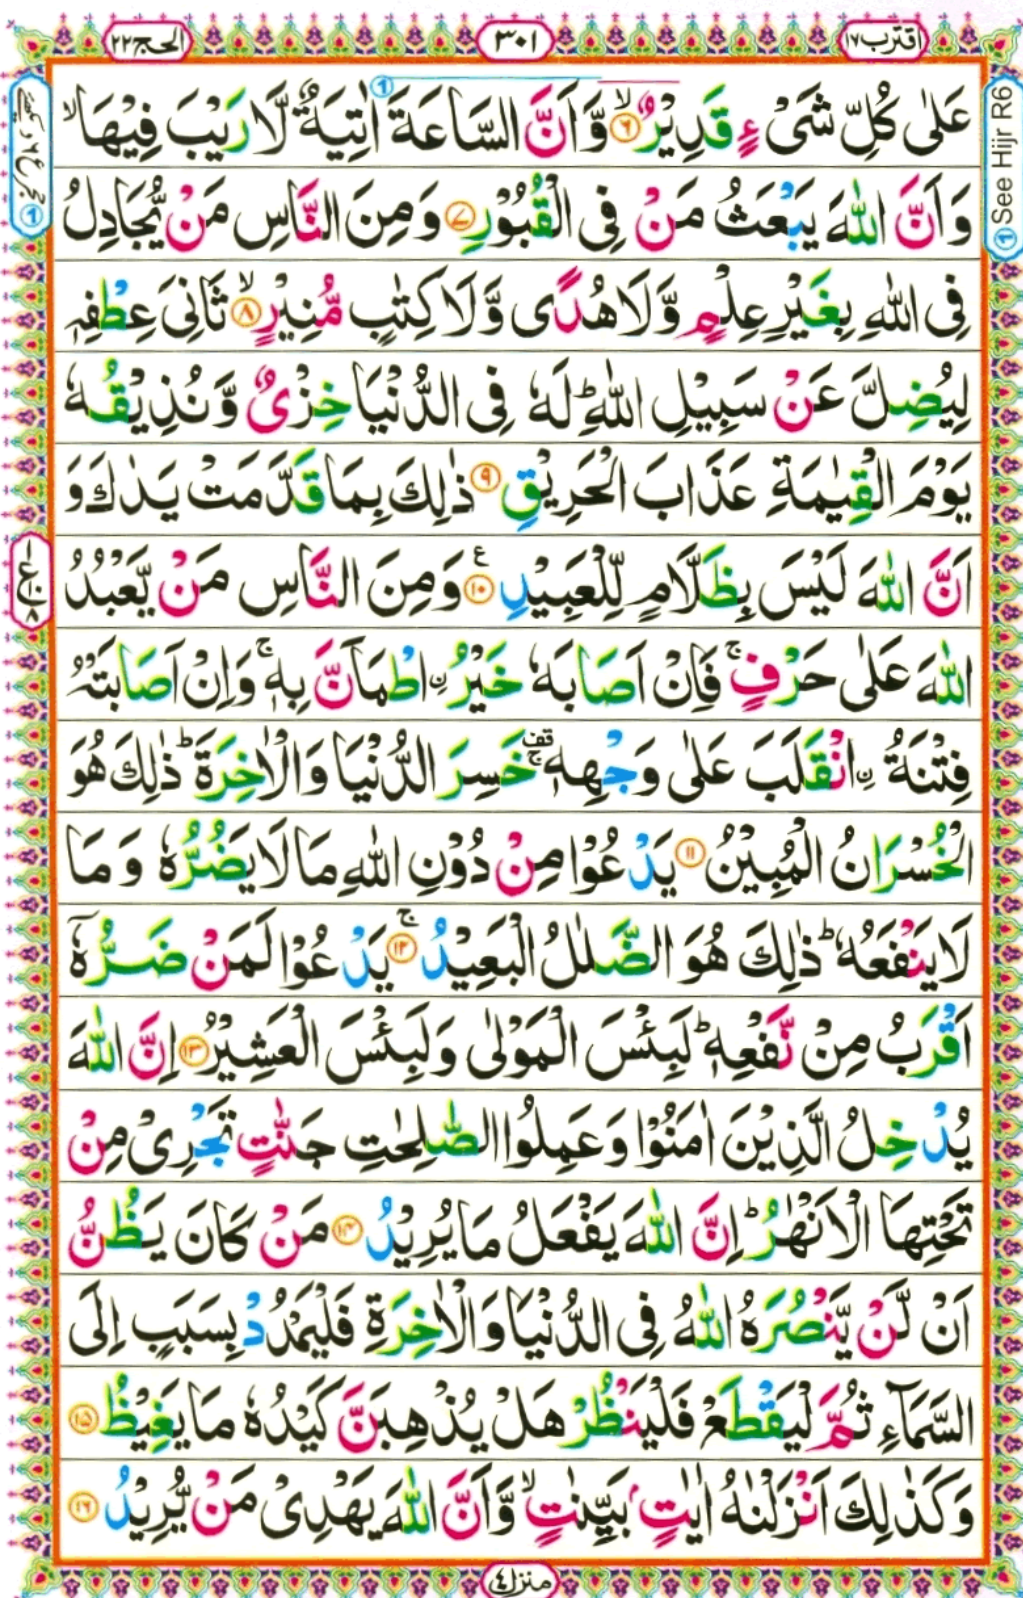 اقترب ١٧
٣٠١
الحج ٢٢
عَلٰى كُلِّ شَىْءٍ قَدِيْرٌ ۙ‏﴿۶﴾ وَّاَنَّ السَّاعَةَ اٰتِيَةٌ لَّا رَيْبَ فِيْهَا ۙ
وَاَنَّ اللّٰهَ يَبْعَثُ مَنْ فِى الْقُبُوْرِ ﴿۷﴾ وَمِنَ النَّاسِ مَنْ يُّجَادِلُ
فِى اللّٰهِ بِغَيْرِ عِلْمٍ وَّلَا هُدًى وَّلَا كِتٰبٍ مُّنِيْرٍ ۙ‏﴿۸﴾ ثَانِىَ عِطْفِهٖ
لِيُضِلَّ عَنْ سَبِيْلِ اللّٰهِ ؕ لَهٗ فِى الدُّنْيَا خِزْىٌ وَّنُذِيْقُهٗ
يَوْمَ الْقِيٰمَةِ عَذَابَ الْحَرِيْقِ ﴿۹﴾ ذٰلِكَ بِمَا قَدَّمَتْ يَدٰكَ وَ
اَنَّ اللّٰهَ لَيْسَ بِظَلَّامٍ لِّلْعَبِيْدِ ﴿۱۰﴾ ع وَمِنَ النَّاسِ مَنْ يَّعْبُدُ
اللّٰهَ عَلٰى حَرْفٍ ۚ فَاِنْ اَصَابَهٗ خَيْرُ ۨاطْمَاَنَّ بِهٖ ۚ وَاِنْ اَصَابَتْهُ
فِتْنَةُ ۨانْقَلَبَ عَلٰى وَجْهِهٖ ۚ قف خَسِرَ الدُّنْيَا وَالْاٰخِرَةَ ؕ ذٰلِكَ هُوَ
الْخُسْرَانُ الْمُبِيْنُ ﴿۱۱﴾ يَدْعُوْا مِنْ دُوْنِ اللّٰهِ مَا لَا يَضُرُّهٗ وَمَا
لَا يَنْفَعُهٗ ؕ ذٰلِكَ هُوَ الضَّلٰلُ الْبَعِيْدُ ۚ‏﴿۱۲﴾ يَدْعُوْا لَمَنْ ضَرُّهٗۤ
اَقْرَبُ مِنْ نَّفْعِهٖ ؕ لَبِئْسَ الْمَوْلٰى وَلَبِئْسَ الْعَشِيْرُ ﴿۱۳﴾ اِنَّ اللّٰهَ
يُدْخِلُ الَّذِيْنَ اٰمَنُوْا وَعَمِلُوا الصّٰلِحٰتِ جَنّٰتٍ تَجْرِىْ مِنْ
تَحْتِهَا الْاَنْهٰرُ ؕ اِنَّ اللّٰهَ يَفْعَلُ مَا يُرِيْدُ ﴿۱۴﴾ مَنْ كَانَ يَظُنُّ
اَنْ لَّنْ يَّنْصُرَهُ اللّٰهُ فِى الدُّنْيَا وَالْاٰخِرَةِ فَلْيَمْدُدْ بِسَبَبٍ اِلَى
السَّمَآءِ ثُمَّ لْيَقْطَعْ فَلْيَنْظُرْ هَلْ يُذْهِبَنَّ كَيْدُهٗ مَا يَغِيْظُ ﴿۱۵﴾
وَكَذٰلِكَ اَنْزَلْنٰهُ اٰيٰتٍۢ بَيِّنٰتٍ ۙ وَّاَنَّ اللّٰهَ يَهْدِىْ مَنْ يُّرِيْدُ ﴿۱۶﴾
منزل ٤
① See Hijr R6